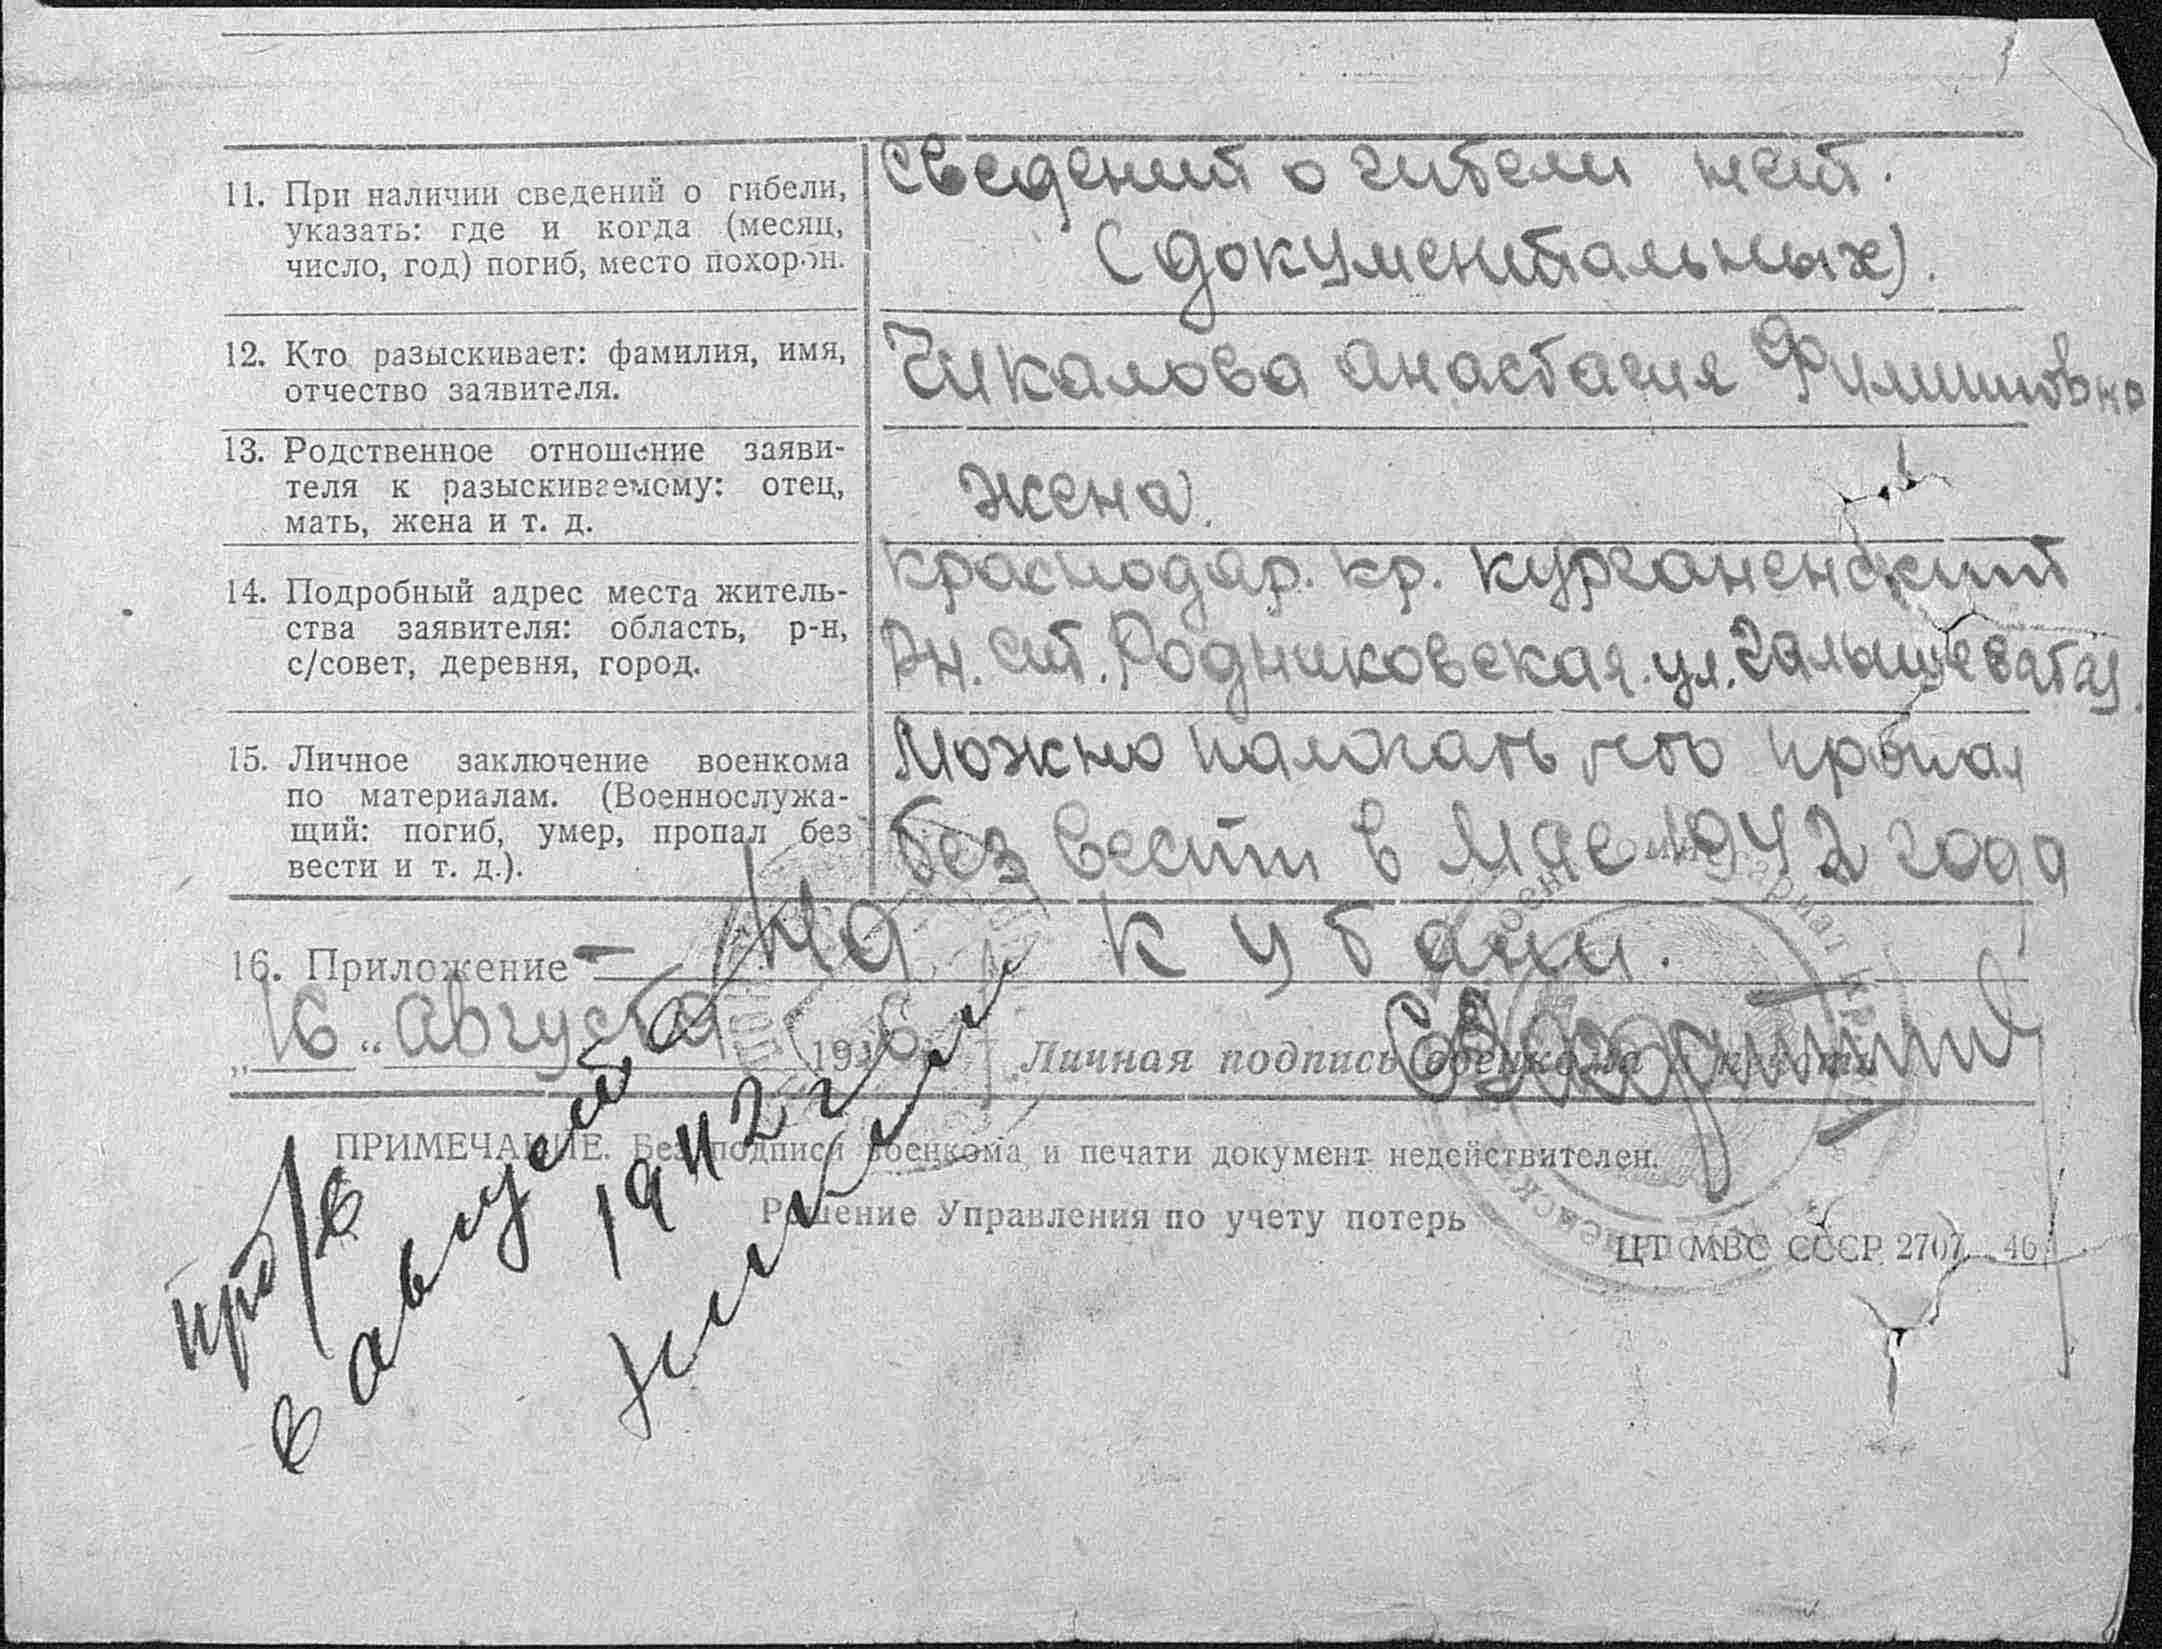 11. При наличии сведений о гибели,
указать: где и когда (месяц,
число, год) погиб, место похорон.
Сведений о гибели нет.
(документальных).
12. Кто разыскивает: фамилия, имя,
отчество заявителя.
Чикалова Анастасия Филипповна
13. Родственное отношение заяви-
теля к разыскиваемому: отец,
мать, жена и т. д.
Жена.
14. Подробный адрес места житель-
ства заявителя: область, р-н,
с/совет, деревня, город.
Краснодар. кр. Курганенский
Рн. ст. Родниковская. ул.
15. Личное заключение военкома
по материалам. (Военнослужа-
щий: погиб, умер, пропал без
вести и т. д.).
Можно пологать что пропал
без вести в Мае 1942 года
на Кубани.
16. Приложение
„16“ августа 1946 Личная подпись военкома и печать
ПРИМЕЧАНИЕ. Без подписи военкома и печати документ недействителен.
Решение Управления по учету потерь
ЦТ МВС СССР 2707—46
пр б/в
в августе
1942 г